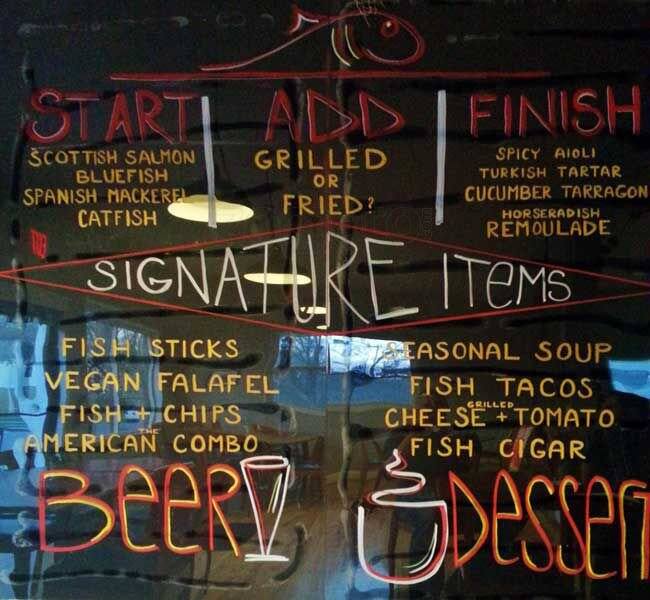 START
SCOTTISH SALMON
BLUEFISH
SPANISH MACKEREL
CATFISH
ADD
GRILLED
OR
FRIED?
FINISH
SPICY AIOLI
TURKISH TARTAR
CUCUMBER TARRAGON
HORSERADISH
REMOULADE
THE
SIGNATURE ITEMS
FISH STICKS
VEGAN FALAFEL
FISH + CHIPS
THE
AMERICAN COMBO
SEASONAL SOUP
FISH TACOS
GRILLED
CHEESE + TOMATO
FISH CIGAR
BEER
DESSERT